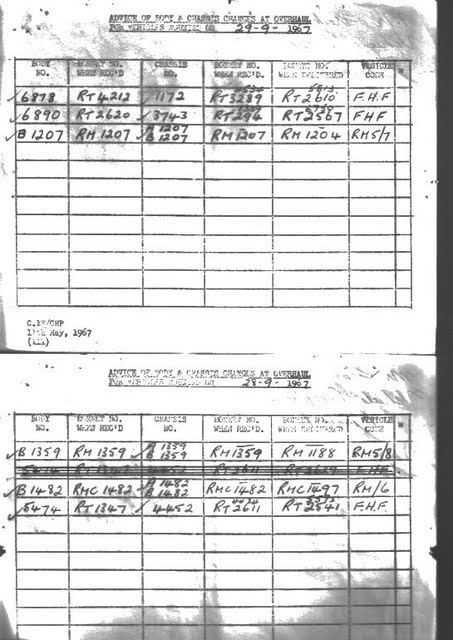 ADVICE OF BODY & CHASSIS CHANGES AT OVERHAUL
FOR VEHICLES 29-9-1967
BODY NO. BONNET NO. WHEN REC'D CHASSIS NO. BONNET NO. WHEN REC'D. BONNET NO. WHEN DELIVERED VEHICLE CODE
✓6878 RT4212 ✓1172 RT3289 RT2610 F.H.F
✓6890 RT2620 ✓3743 RT294 RT2567 FHF
✓B1207 RM1207 ✓A1207 B1207 RM1207 RM1204 RM5/7
C.12/CHP
May, 1967
ADVICE OF BODY & CHASSIS CHANGES AT OVERHAUL
FOR VEHICLES 28-9-1967
BODY NO. BONNET NO. WHEN REC'D CHASSIS NO. BONNET NO. WHEN REC'D. BONNET NO. WHEN DELIVERED VEHICLE CODE
✓B1359 RM1359 ✓A1359 B1359 RM1359 RM1188 RM5/8
5474 RT1347 4452 RT2611 F.H.F.
✓B1482 RMC1482 ✓A1482 B1482 RMC1482 RMC1497 RM/6
✓5474 RT1347 ✓4452 RT2611 RT2541 F.H.F.